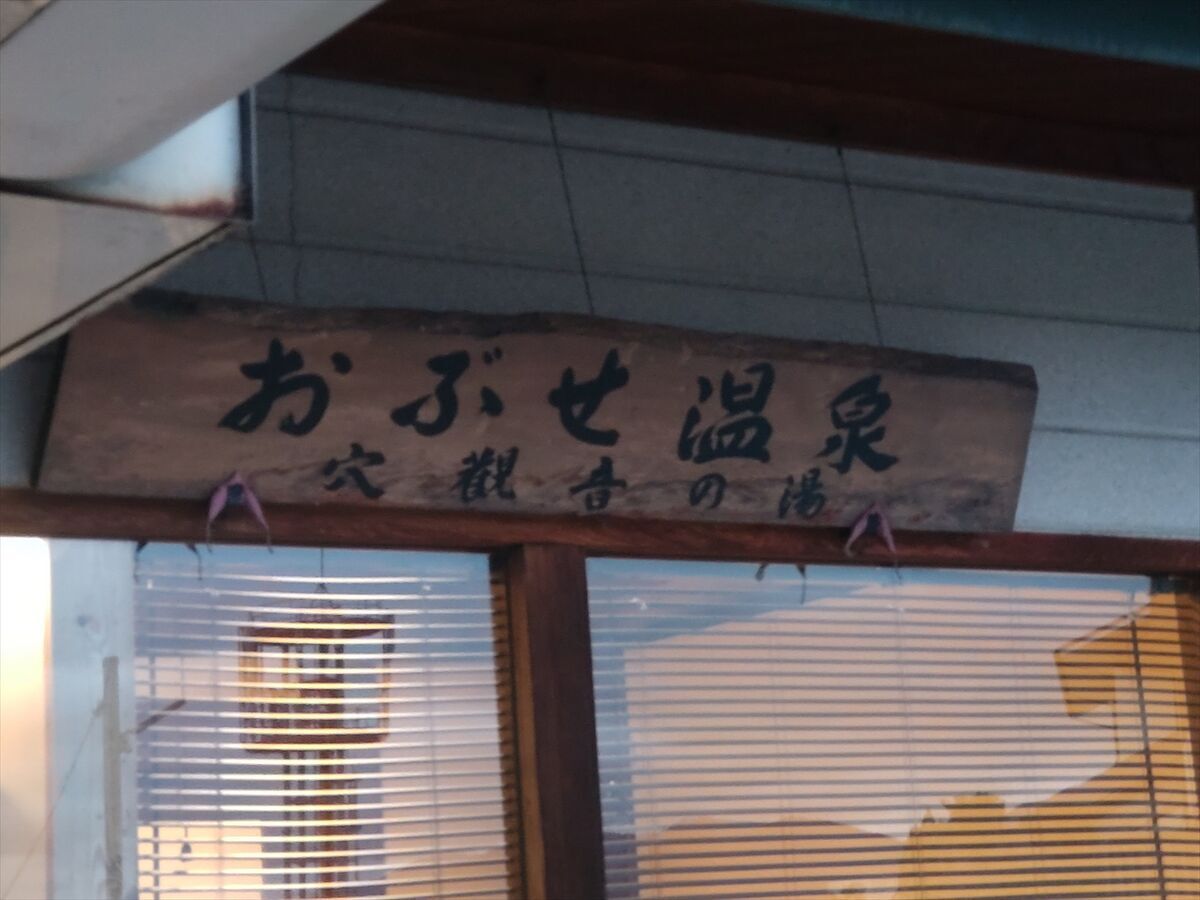 おぶせ温泉
穴觀音の湯